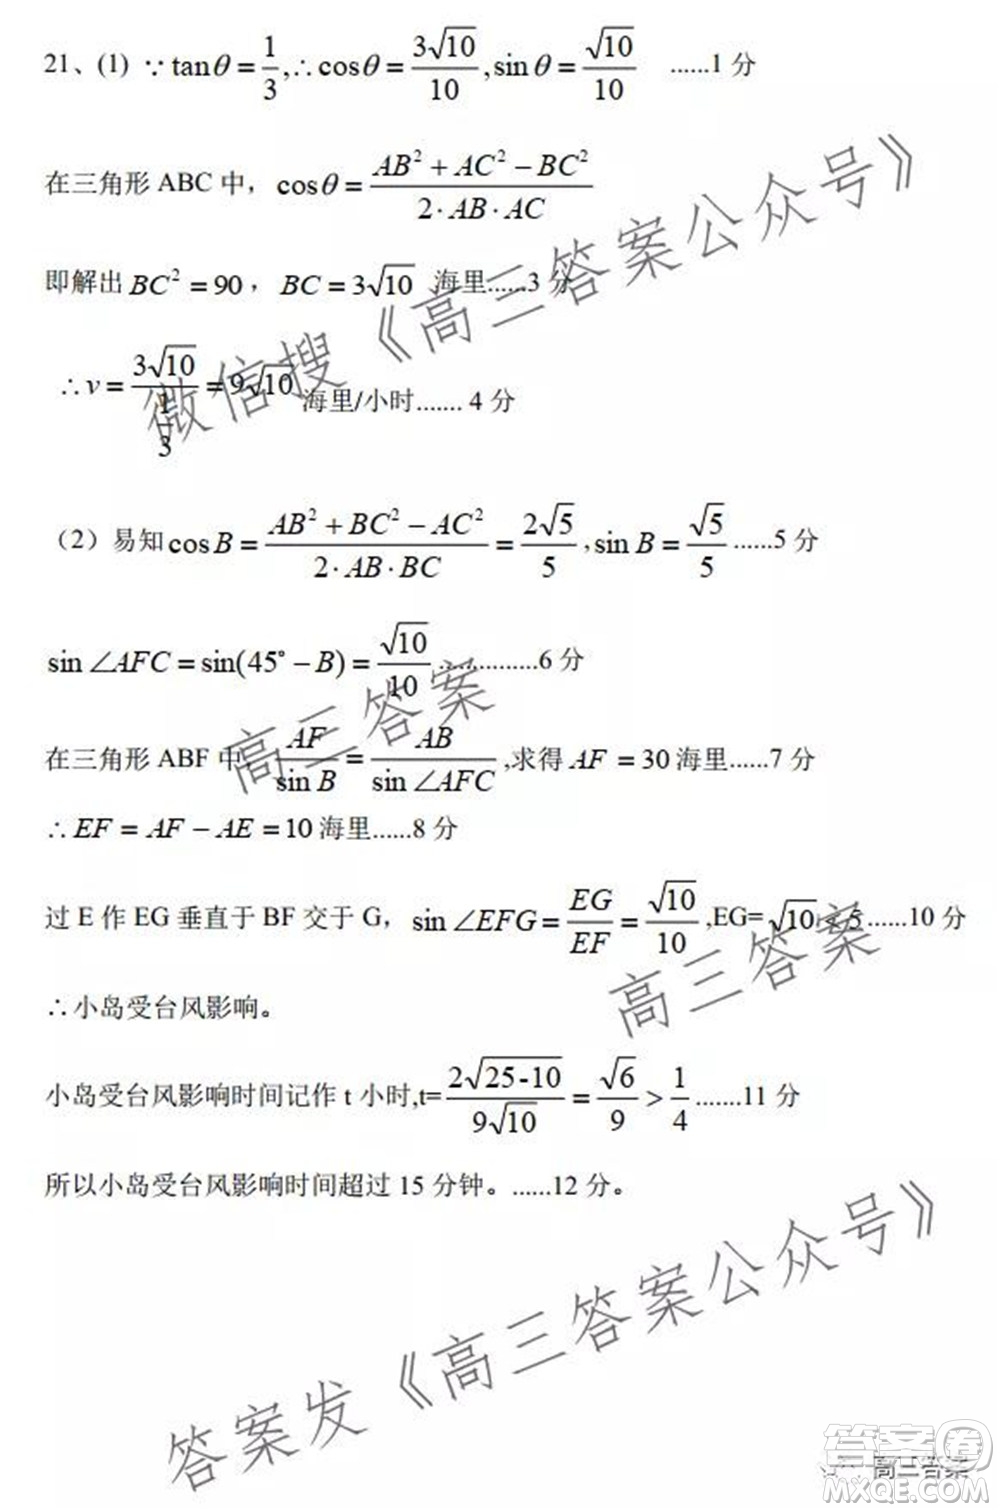 21、(1) ∵tanθ=1/3,∴cosθ=3√10/10,sinθ=√10/10 ......1 分
在三角形 ABC 中，cosθ=(AB²+AC²−BC²)/(2·AB·AC)
即解出 BC²=90，BC=3√10 海里......3 分
∴v=(3√10)/(1/3)=9√10 海里/小时....... 4 分
（2）易知 cosB=(AB²+BC²−AC²)/(2·AB·BC)=2√5/5,sinB=√5/5 ......5 分
sin∠AFC=sin(45°−B)=√10/10 ...............6 分
在三角形 ABF 中，AF/sinB=AB/sin∠AFC,求得 AF=30 海里......7 分
∴EF=AF−AE=10 海里......8 分
过 E 作 EG 垂直于 BF 交于 G，sin∠EFG=EG/EF=√10/10,EG=√10<5......10 分
∴小岛受台风影响。
小岛受台风影响时间记作 t 小时,t=2√(25-10)/(9√10)=√6/9>1/4 .......11 分
所以小岛受台风影响时间超过 15 分钟。......12 分。
微信搜《高三答案公众号》
高三答案
高三答案
答案发《高三答案公众号》
答案圈
高三答案
MXQE.COM